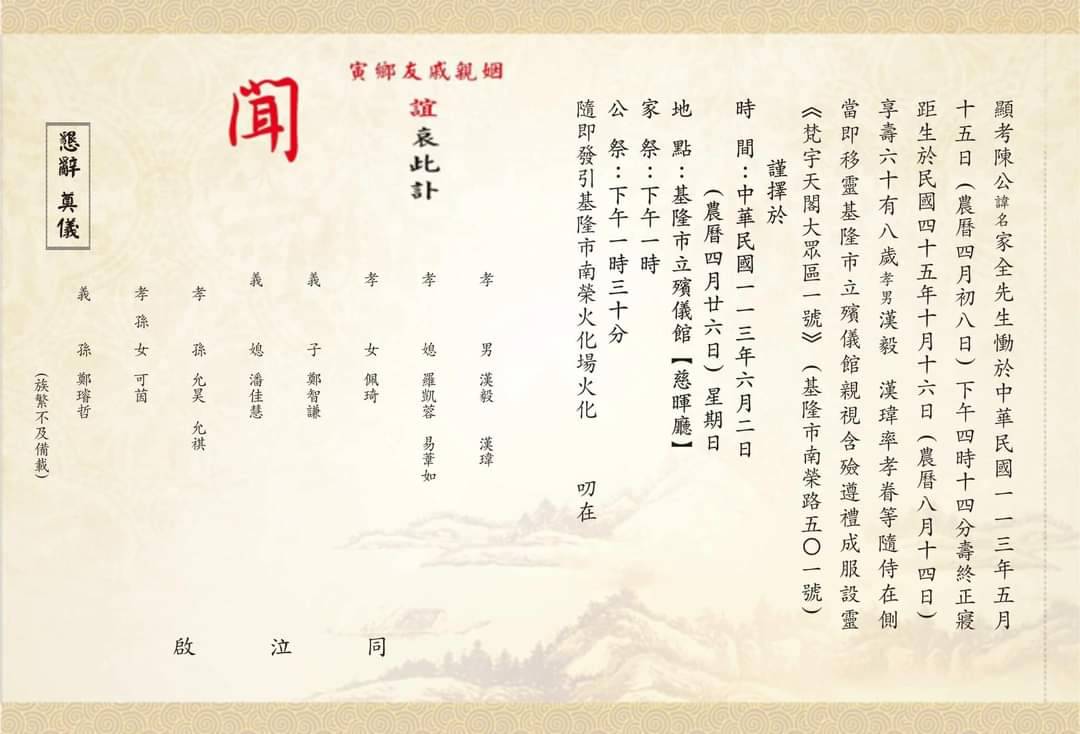 顯考陳公諱名家全先生慟於中華民國一一三年五月
十五日(農曆四月初八日)下午四時十四分壽終正寢
距生於民國四十五年十月十六日(農曆八月十四日)
享壽六十有八歲孝男漢毅 漢瑋率孝眷等隨侍在側
當即移靈基隆市立殯儀館親視含殮遵禮成服設靈
《梵宇天閣大眾區一號》(基隆市南榮路五〇一號)
謹擇於
時 間:中華民國一一三年六月二日
(農曆四月廿六日)星期日
地 點:基隆市立殯儀館【慈暉廳】
家 祭:下午一時
公 祭:下午一時三十分
隨即發引基隆市南榮火化場火化 叨在
姻親戚友鄉寅
誼哀此訃
聞
孝 男 漢毅 漢瑋
孝 媳 羅凱蓉 易葦如
孝 女 佩琦
義 子 鄭智謙
義 媳 潘佳慧
孝 孫 允昊 允祺
孝 孫 女 可茵
義 孫 鄭璿哲
(族繁不及備載)
同 泣 啟
懇辭 奠儀